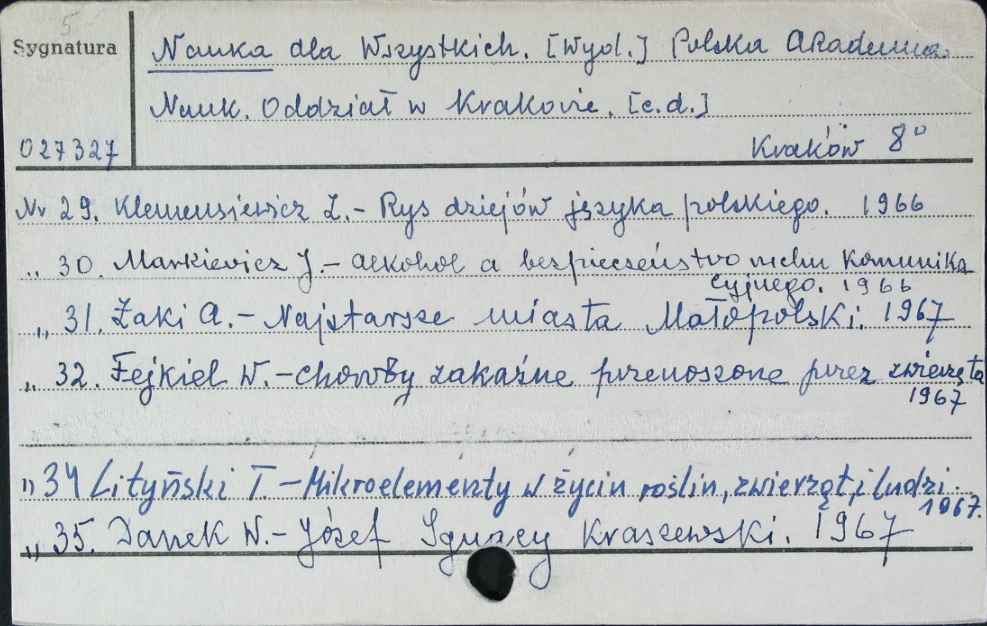 5
Sygnatura
Nauka dla Wszystkich. [Wyd.] Polska Akademia
Nauk. Oddział w Krakowie. [c.d.]
027327
Kraków 8°
Nr 29. Klemensiewicz Z. - Rys dziejów języka polskiego. 1966
„ 30. Markiewicz J. - Alkohol a bezpieczeństwo ruchu komunika
cyjnego. 1966
„ 31. Żaki A. - Najstarsze miasta Małopolski. 1967
„ 32. Fejkiel W. - choroby zakaźne przenoszone przez zwierzęta
1967
„ 34 Lityński T. - Mikroelementy w życiu roślin, zwierząt, i ludzi.
1967.
„ 35. Danek W. - Józef Ignacy Kraszewski. 1967